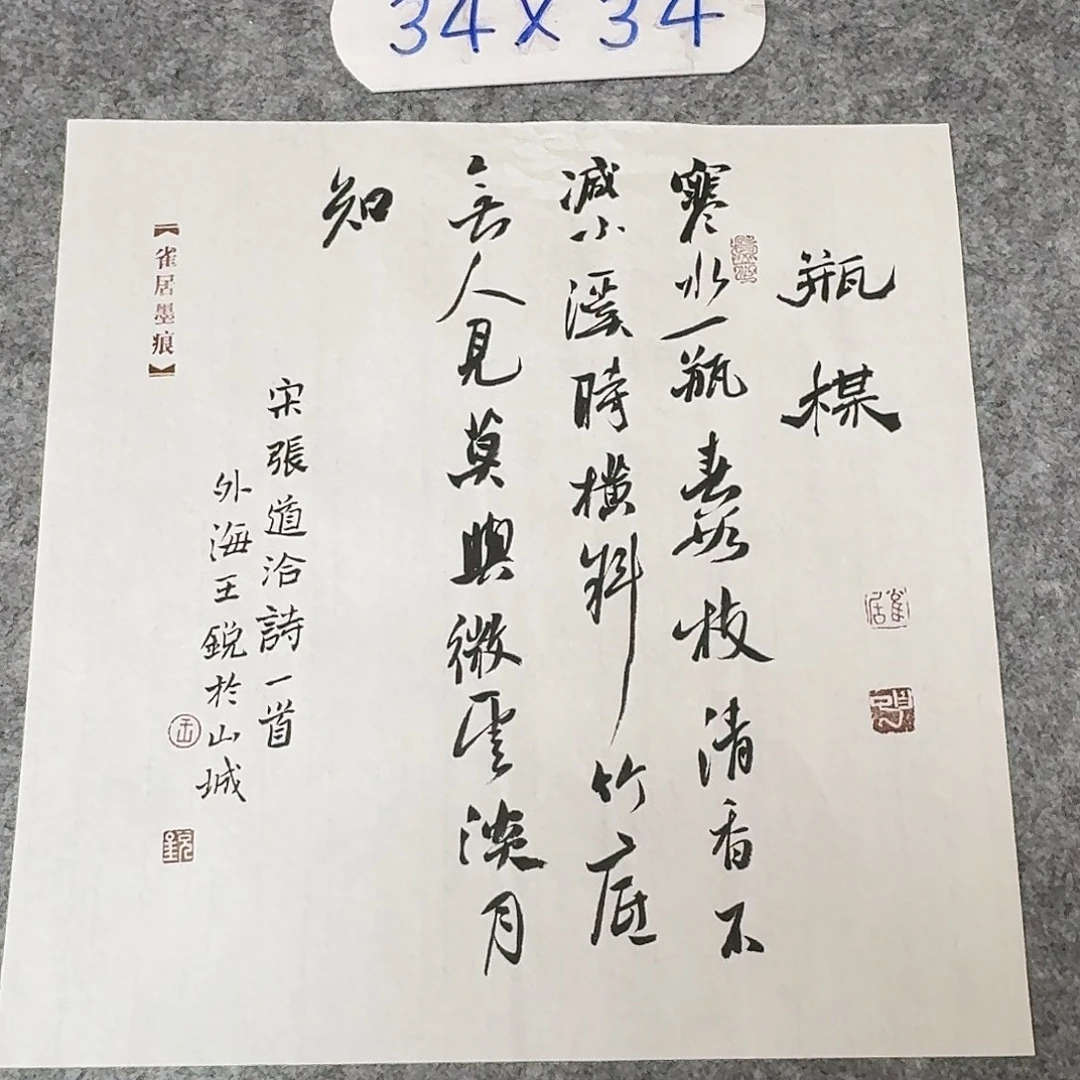 34X34
瓶楳
寒水一瓶春數枝清香不
減小溪時橫斜竹底
無人見莫與微雲淡月
知
宋張道洽詩一首
外海王鋭於山城
【雀居墨痕】
雀居
王
鋭